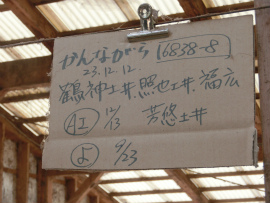 かんながら 6838-8
23.12.12.
鶴神土井、照也土井、福広
12/13 芳悠土井
よ 9/23